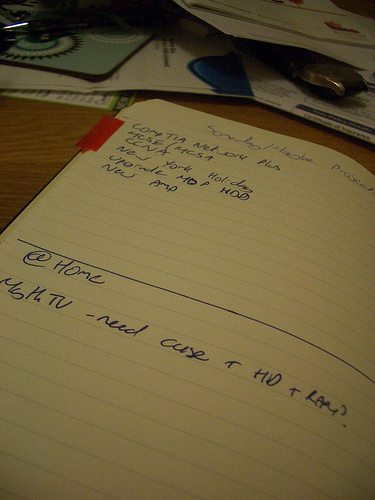 Someday/Maybe Projects
COMPTIA Network plus
MCSE/MCSA
CCNA
New York Holiday
Upgrade MDP HDD
New Amp
@ Home
MythTV - need case + HD + RAM?